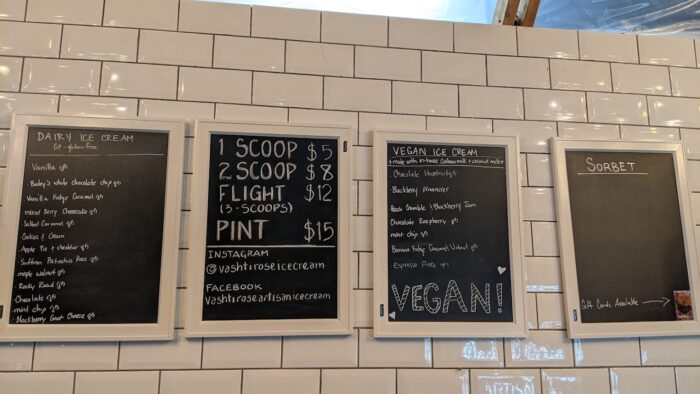 DAIRY ICE CREAM
GF - gluten free
Vanilla gf
Bailey's white chocolate chip gf
Vanilla Fudge Caramel gf
mixed Berry Cheesecake gf
Salted Caramel gf
Cookies & Cream
Apple Pie & cheddar gf
Saffron Pistachio Rose gf
maple walnut gf
Rocky Road gf
Chocolate gf
mint chip gf
Blackberry Goat Cheese gf
1 SCOOP $5
2 SCOOP $8
FLIGHT $12
(3-SCOOPS)
PINT $15
INSTAGRAM
@vashtiroseicecream
FACEBOOK
vashtiroseartisanicecream
VEGAN ICE CREAM
made with in-house cashew milk & coconut milk
Chocolate Hazelnut gf
Blackberry Financier
Peach Crumble & Blackberry Jam
Chocolate Raspberry gf
mint chip gf
Banana Fudge Caramel Walnut gf
Espresso gf
VEGAN!
SORBET
Gift Cards Available
ARTISAN